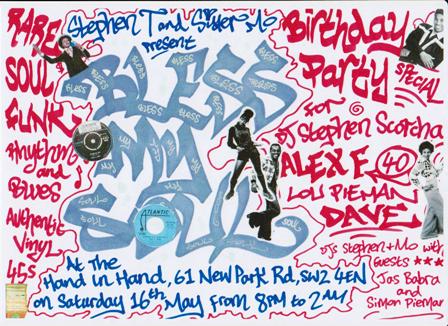 RARE
SOUL
FUNK
Rhythm
and
Blues
Authentic
Vinyl
45s
Stephen T and Sister Mo
Present
BLESS
MY
SOUL
Birthday
Party
SPECIAL
For
DJ Stephen Scorcha
ALEX E. 40
LOU PIEMAN
DAVE
DJs Stephen + Mo with
Guests ***
Jas Babra
and
Simon Pieman
ATLANTIC
At The
Hand in Hand, 61 New Park Rd, SW2 4EN
on Saturday 16th May From 8PM to 2AM